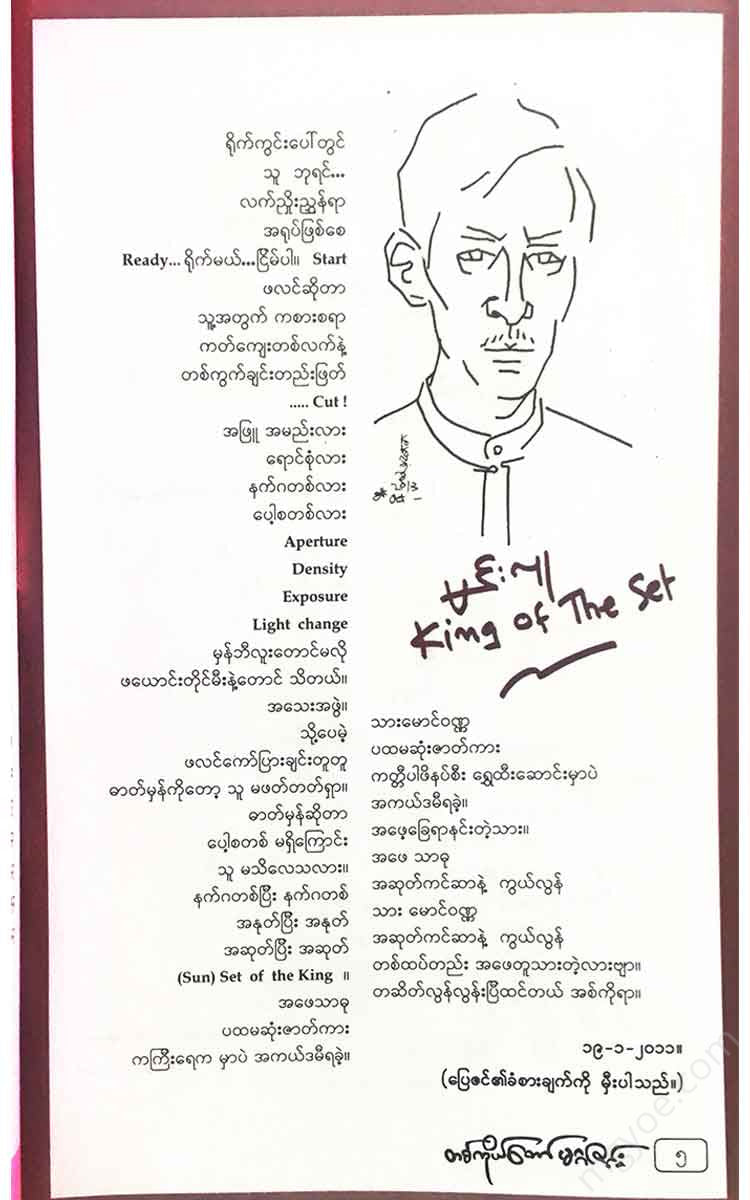 ရိုက်ကွင်းပေါ်တွင်
သူ ဘုရင်...
လက်ညှိုးညွှန်ရာ
အရုပ်ဖြစ်စေ
Ready... ရိုက်မယ်...ငြိမ်ပါ။ Start
ဖလင်ဆိုတာ
သူ့အတွက် ကစားစရာ
ကတ်ကျေးတစ်လက်နဲ့
တစ်ကွက်ချင်းတည်းဖြတ်
..... Cut !
အဖြူ အမည်းလား
ရောင်စုံလား
နက်ဂတစ်လား
ပေါ့စတစ်လား
Aperture
Density
Exposure
Light change
မှန်ဘီလူးတောင်မလို
ဖယောင်းတိုင်မီးနဲ့တောင် သိတယ်။
အသေးအဖွဲ။
သို့ပေမဲ့
ဖလင်ကော်ပြားချင်းတူတူ
ဓာတ်မှန်ကိုတော့ သူ မဖတ်တတ်ရှာ။
ဓာတ်မှန်ဆိုတာ
ပေါ့စတစ် မရှိကြောင်း
သူ မသိလေသလား။
နက်ဂတစ်ပြီး နက်ဂတစ်
အနုတ်ပြီး အနုတ်
အဆုတ်ပြီး အဆုတ်
(Sun) Set of the King ။
အဖေသာဓု
ပထမဆုံးဇာတ်ကား
ကကြီးရေက မှာပဲ အကယ်ဒမီရခဲ့။
King of The Set
သားမောင်ဝဏ္ဏ
ပထမဆုံးဇာတ်ကား
ကတ္တီပါဖိနပ်စီး ရွှေထီးဆောင်းမှာပဲ
အကယ်ဒမီရခဲ့။
အဖေ့ခြေရာနင်းတဲ့သား။
အဖေ သာဓု
အဆုတ်ကင်ဆာနဲ့ ကွယ်လွန်
သား မောင်ဝဏ္ဏ
အဆုတ်ကင်ဆာနဲ့ ကွယ်လွန်
တစ်ထပ်တည်း အဖေတူသားတဲ့လားဗျာ။
တဆိတ်လွန်လွန်းပြီထင်တယ် အစ်ကိုရာ။
၁၉-၁-၂၀၁၁။
(ပြေဇင်၏ခံစားချက်ကို မှီးပါသည်။)
၅